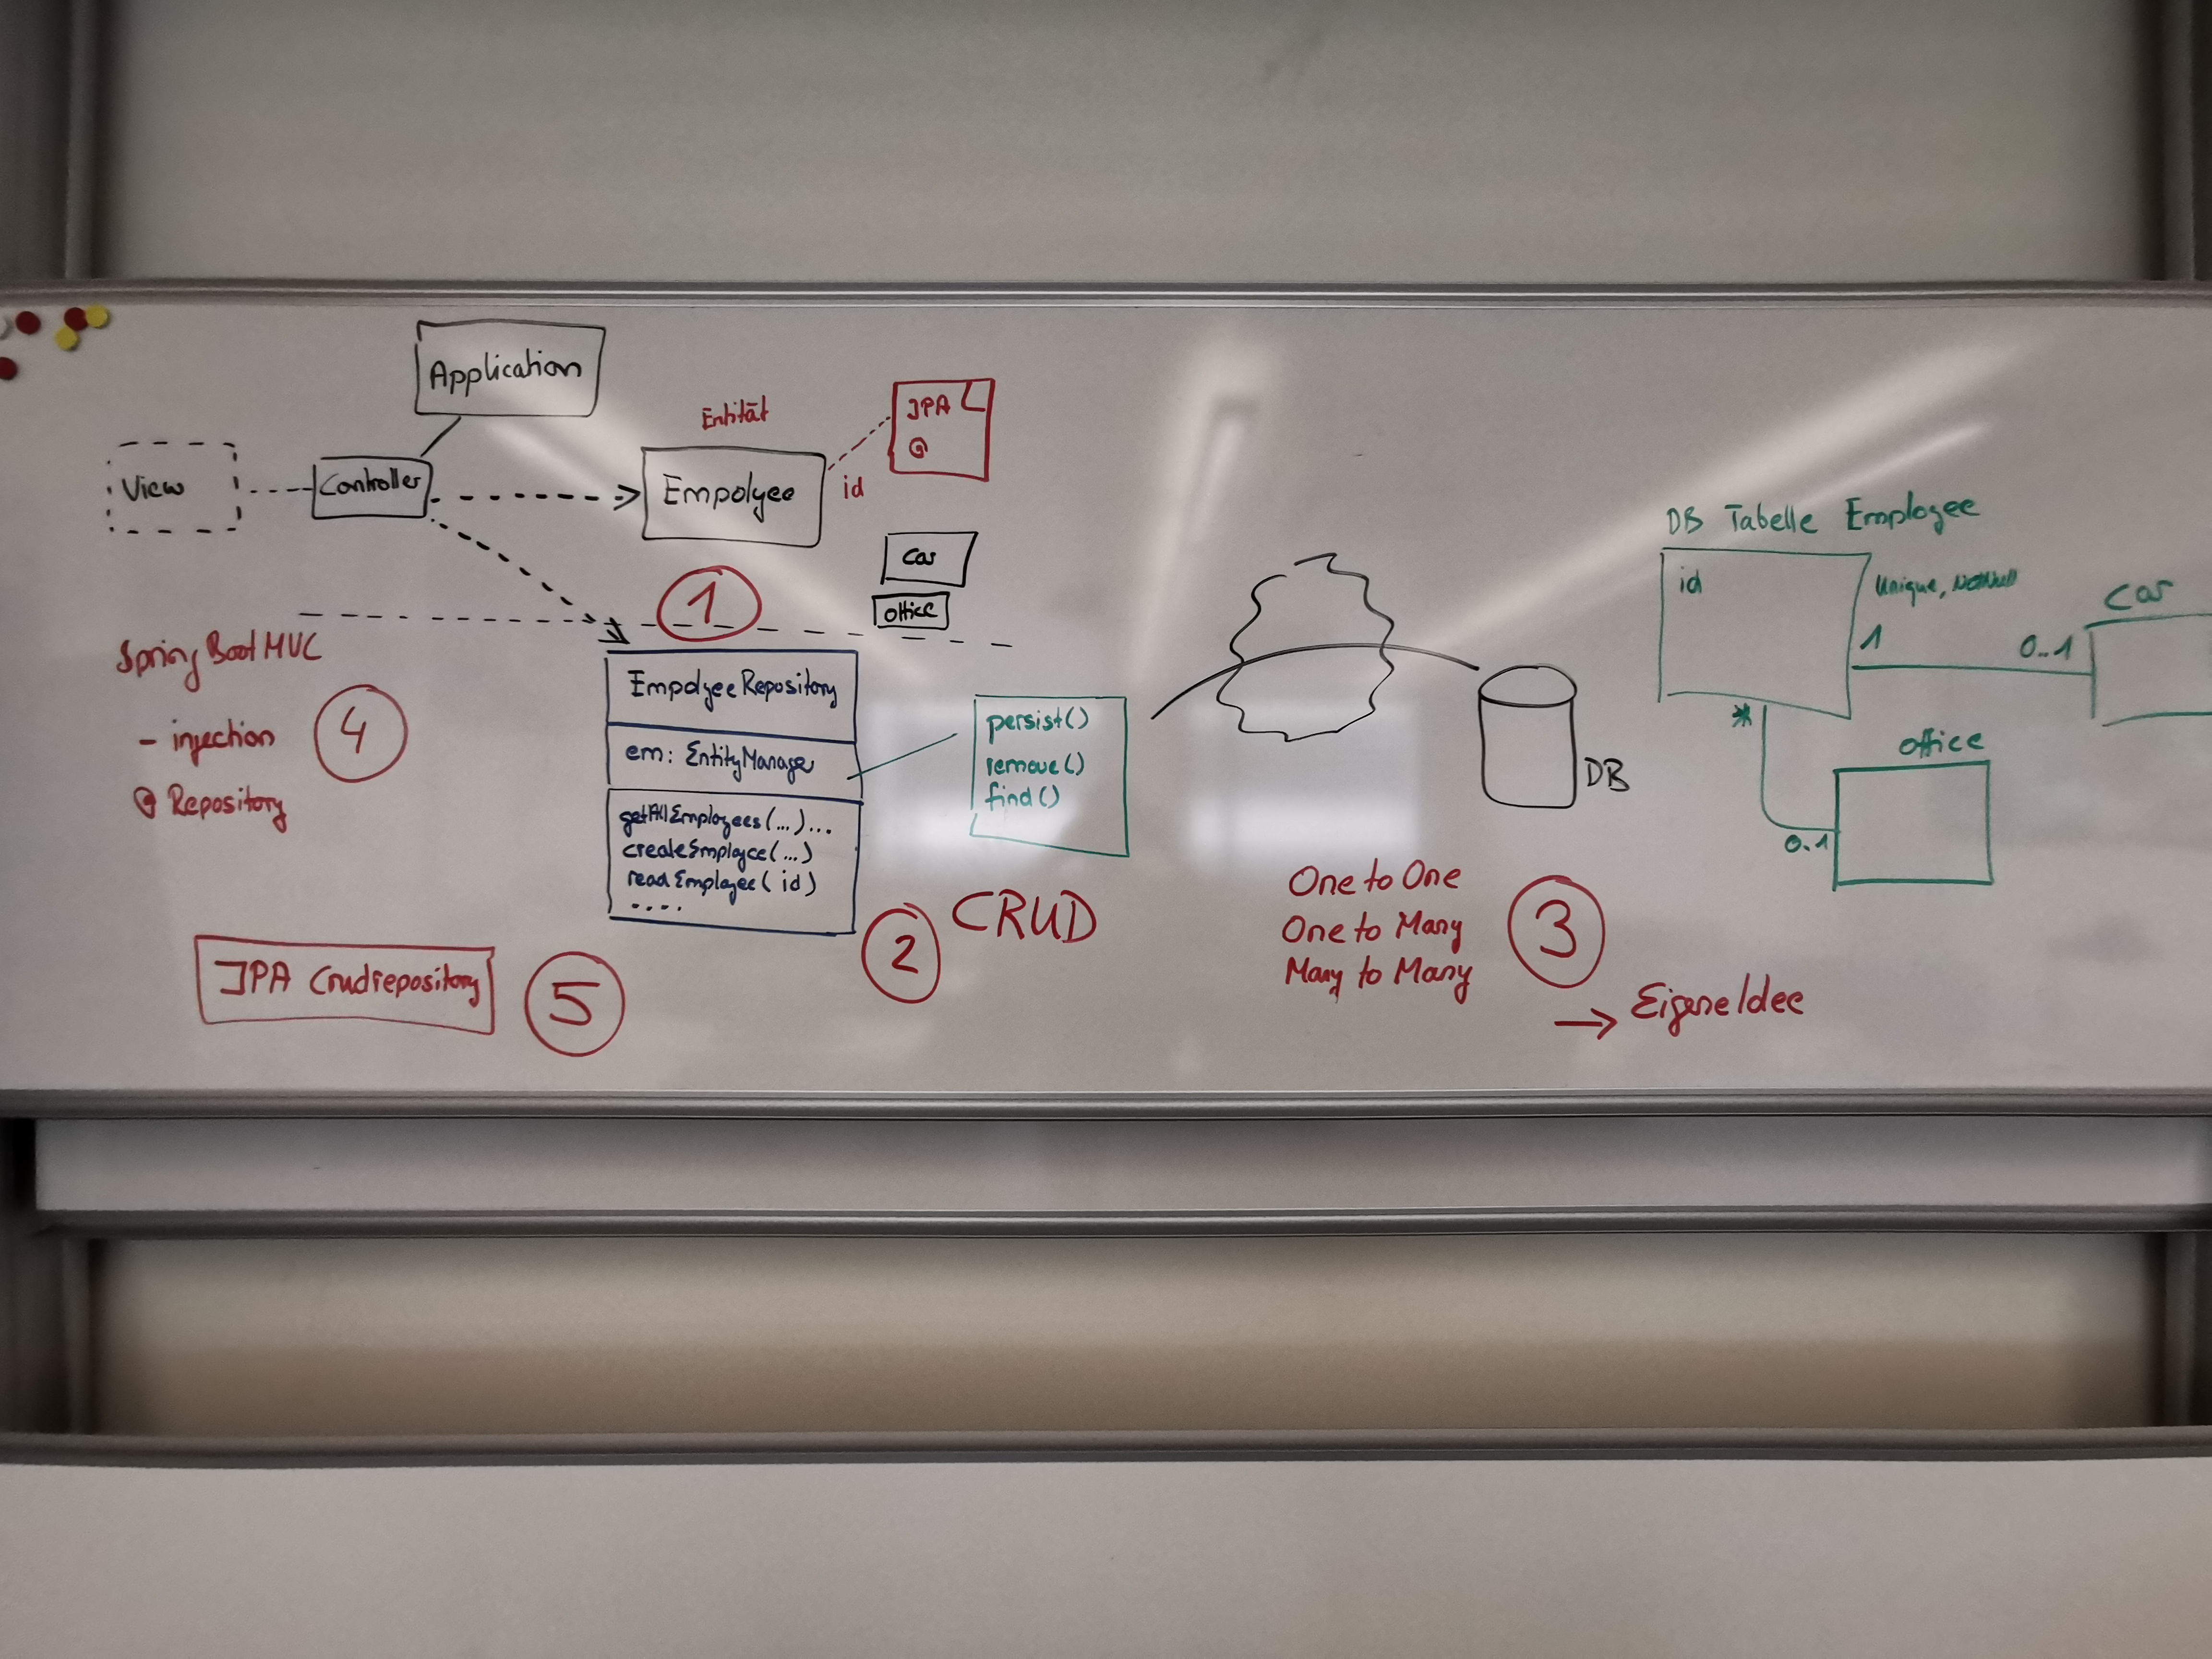 Application
View
Controller
Entität
Empolyee
id
JPA
@
Car
office
1
Spring Boot MVC
- injection
@ Repository
4
EmpolyeeRepository
em: EntityManager
getAllEmployees(...)...
createEmployee(...)
readEmployee(id)
....
persist()
remove()
find()
2
CRUD
JPA Crudrepository
5
DB
One to One
One to Many
Many to Many
3
→ Eigene Idee
DB Tabelle Employee
id
Unique, NotNull
1
0..1
Car
*
0..1
office